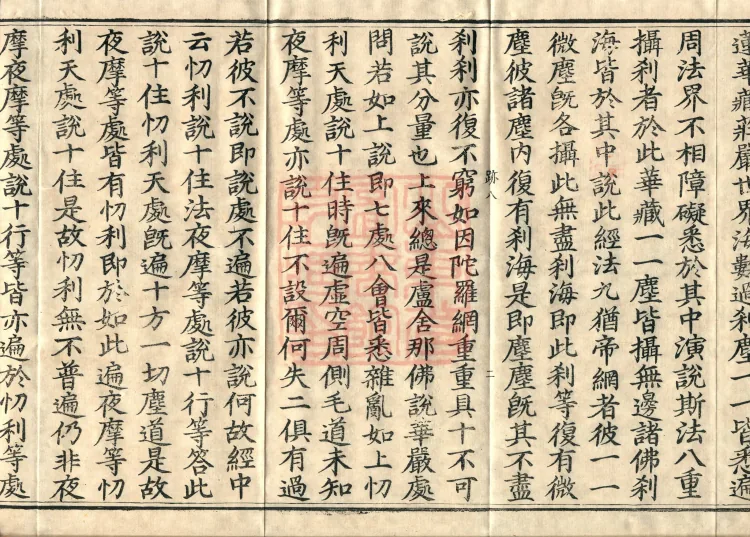 蓮華藏莊嚴世界海數過刹塵一一皆悉遍
周法界不相障礙悉於其中演說斯法八重
攝刹者於此華藏一一塵皆攝無邊諸佛刹
海皆於其中說此經法九猶帝網者彼一一
微塵旣各攝此無盡刹海即此刹等復有微
塵彼諸塵內復有刹海是即塵塵旣其不盡
跡八 二
刹刹亦復不窮如因陀羅網重重具十不可
說其分量也上來總是盧舍那佛說華嚴處
問若如上說即七處八會皆悉雜亂如上忉
利天處說十住時旣遍虛空周側毛道未知
夜摩等處亦說十住不設爾何失二俱有過
若彼不說即說處不遍若彼亦說何故經中
云忉利說十住法夜摩等處說十行等荅此
說十住忉利天處旣遍十方一切塵道是故
夜摩等處皆有忉利即於如此遍夜摩等忉
利天處說十住是故忉利無不普遍仍非夜
摩夜摩等處說十行等皆亦遍於忉利等處